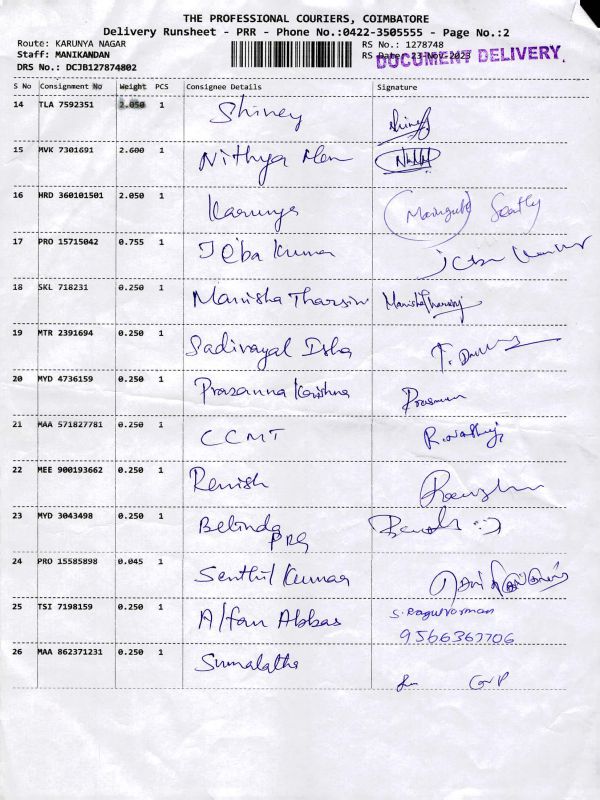 THE PROFESSIONAL COURIERS, COIMBATORE
Delivery Runsheet - PRR - Phone No.:0422-3505555 - Page No.:2
Route: KARUNYA NAGAR RS No.: 1278748
Staff: MANIKANDAN RS Date: 23-Nov-2023
DOCUMENT DELIVERY.
DRS No.: DCJB127874802
S No Consignment No Weight PCS Consignee Details Signature
14 TLA 7592351 2.050 1 Shiney Shiney
15 MVK 7301691 2.600 1 Nithya Men
16 HRD 360101501 2.050 1 Karunya
17 PRO 15715042 0.755 1 Jeba Kumar
18 SKL 718231 0.250 1 Manisha Tharsin
19 MTR 2391694 0.250 1 Sadivayal Isha
20 MYD 4736159 0.250 1 Prasanna Krishna
21 MAA 571827781 0.250 1 CCMT
22 MEE 900193662 0.250 1 Renish
23 MYD 3043498 0.250 1 Belinda
PRG
24 PRO 15585898 0.045 1 Senthil Kumar
25 TSI 7198159 0.250 1 Alfan Abbas S. Raguvarman
9566363706
26 MAA 862371231 0.250 1 Sumalatha